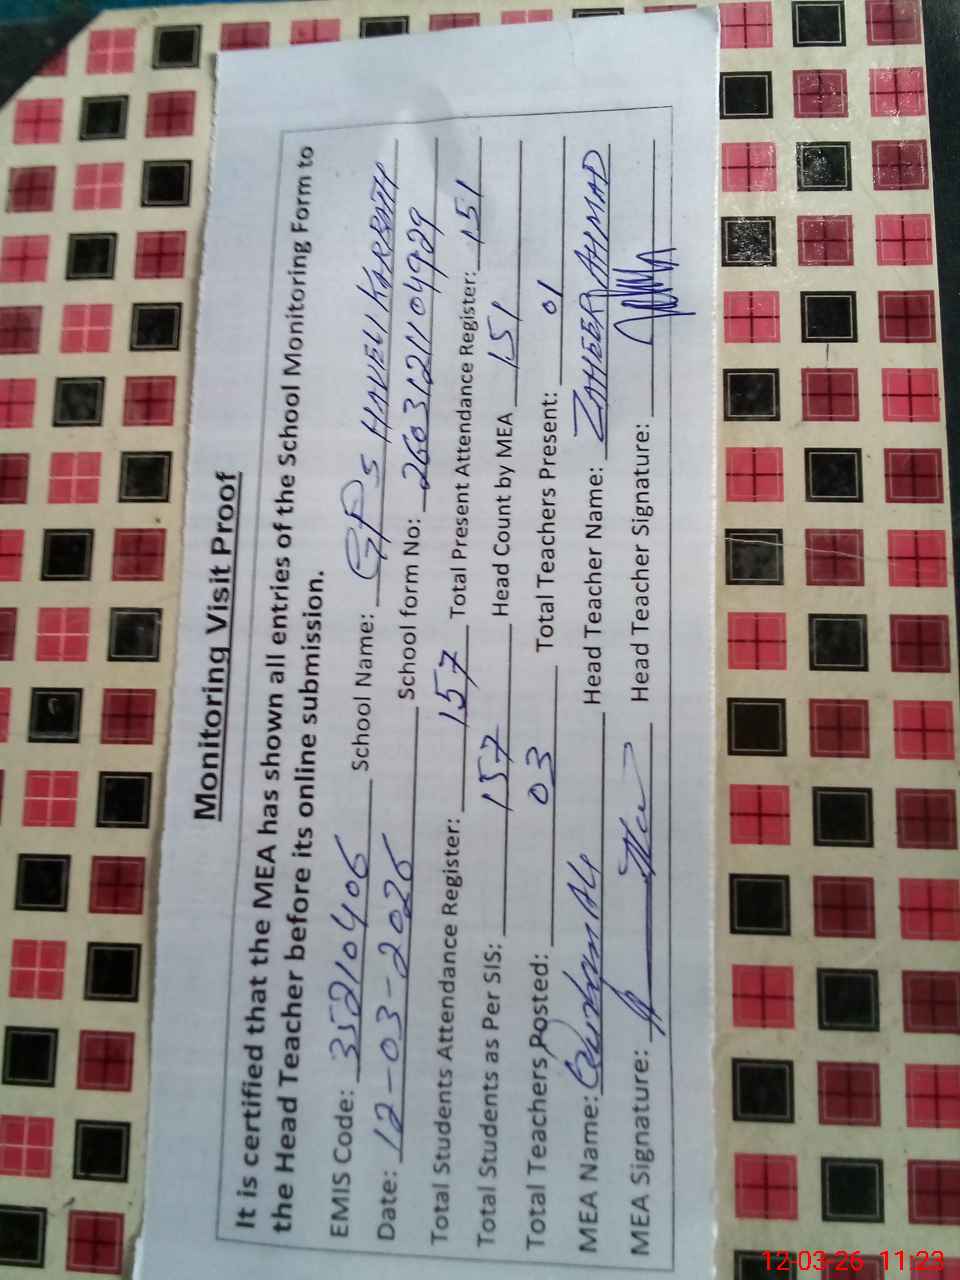 Monitoring Visit Proof
It is certified that the MEA has shown all entries of the School Monitoring Form to
the Head Teacher before its online submission.
EMIS Code: 35210406 School Name: GPS HAVELI KARBATH
Date: 12-03-2026 School form No: 2603121104929
Total Students Attendance Register: 157 Total Present Attendance Register: 151
Total Students as Per SIS: 157 Head Count by MEA 151
Total Teachers Posted: 03 Total Teachers Present: 01
MEA Name: Ali Head Teacher Name: ZAHEER AHMAD
MEA Signature: Head Teacher Signature:
12-03-26 11:23